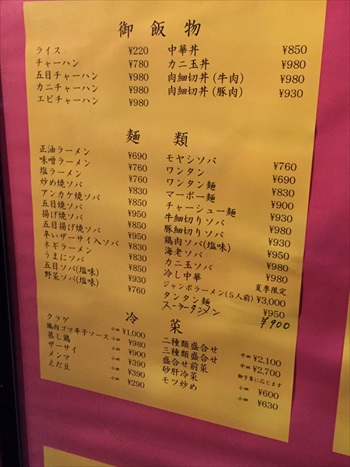 御飯物
ライス ¥220
チャーハン ¥780
五目チャーハン ¥980
カニチャーハン ¥980
エビチャーハン ¥980
中華丼 ¥850
カニ玉丼 ¥980
肉細切丼(牛肉) ¥980
肉細切丼(豚肉) ¥930
麺類
正油ラーメン ¥690
味噌ラーメン ¥760
塩ラーメン ¥690
炒め焼ソバ ¥830
アンカケ焼ソバ ¥830
五目焼ソバ ¥850
揚げ焼ソバ ¥950
五目揚げ焼ソバ ¥950
辛いザーサイ入ソバ ¥830
ネギラーメン ¥830
うまにソバ ¥830
五目ソバ(塩味) ¥930
野菜ソバ(塩味) ¥760
モヤシソバ ¥760
ワンタン ¥690
ワンタン麺 ¥830
マーボー麺 ¥900
チャーシュー麺 ¥930
牛細切りソバ ¥980
豚細切ソバ ¥930
鶏肉ソバ(塩味) ¥930
海老ソバ ¥950
カニ玉ソバ ¥980
冷し中華 夏季限定
ジャンボラーメン(5人前) ¥3,000
タンタン麺 ¥950
スーラータンメン ¥900
冷菜
クラゲ 小皿 ¥1,000
鶏肉ゴマ辛子ソース 小皿 ¥980
蒸し鶏 小皿 ¥900
ザーサイ 小皿 ¥390
メンマ 小皿 ¥390
えだ豆 小皿 ¥290
二種類盛合せ 中皿 ¥2,100
三種類盛合せ 中皿 ¥2,700
盛合せ前菜 御予算に応じます
砂肝冷菜 小皿 ¥600
モツ炒め 小皿 ¥630